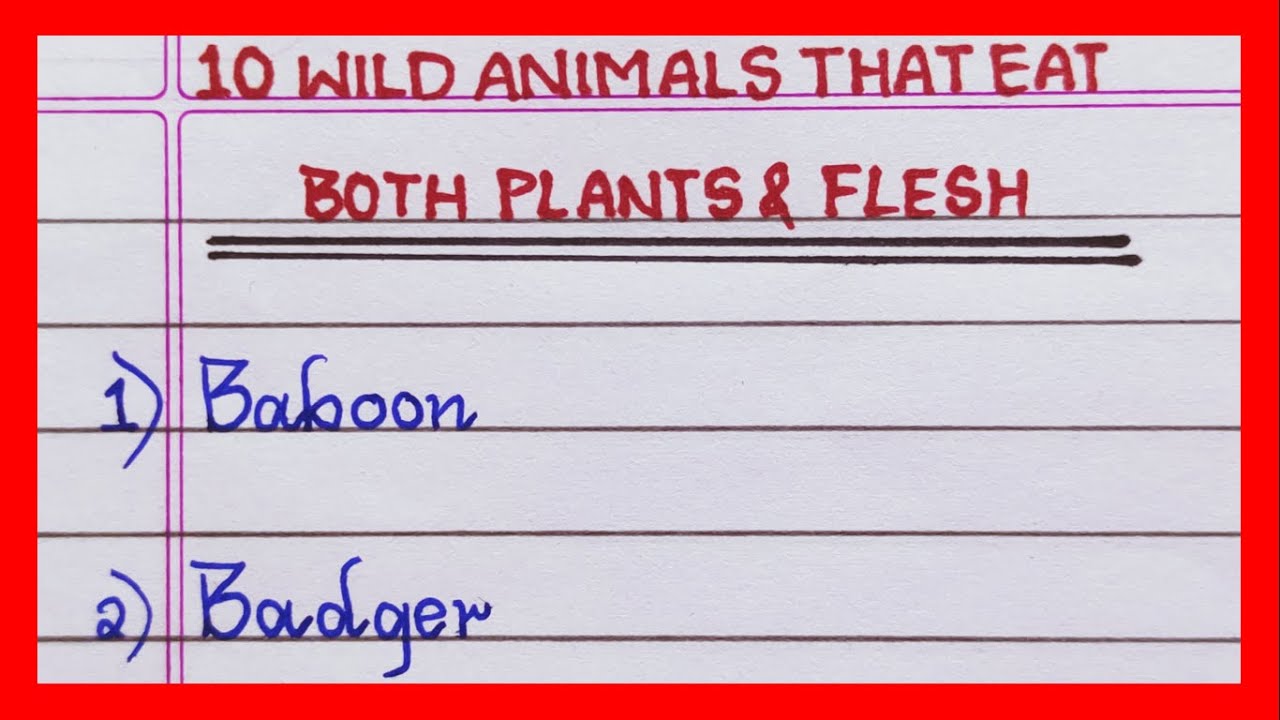 10 WILD ANIMALS THAT EAT
BOTH PLANTS & FLESH
1) Baboon
2) Badger